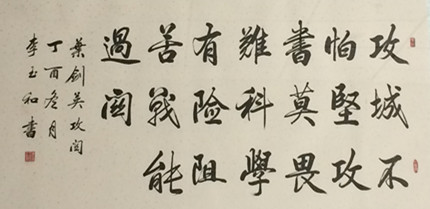 攻城不
怕堅攻
書莫畏
難科學
有险阻
苦戰能
過関
葉剑英攻関
丁酉冬月
李玉和書